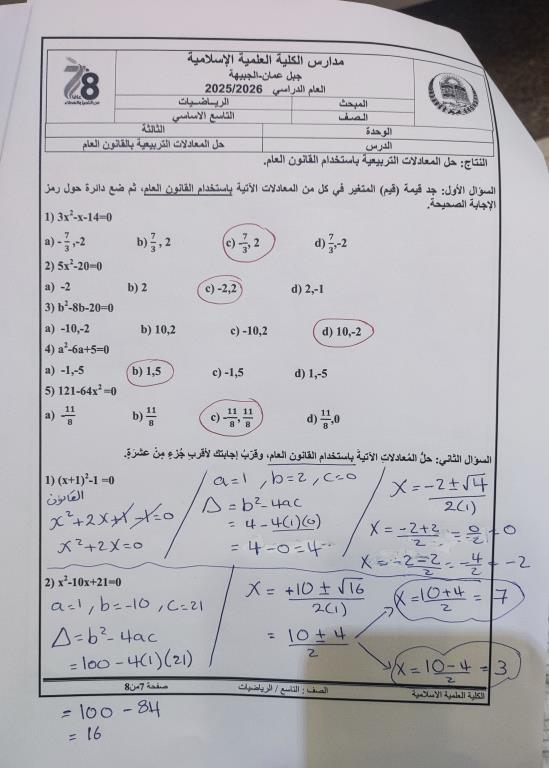 مدارس الكلية العلمية الإسلامية
جبل عمان-الجبيهة
العام الدراسي 2025/2026
المبحث الرياضيات
الصف التاسع الاساسي
الوحدة الثالثة
الدرس حل المعادلات التربيعية بالقانون العام
78 عاماً
النتاج: حل المعادلات التربيعية باستخدام القانون العام.
السؤال الأول: جد قيمة (قيم) المتغير في كل من المعادلات الآتية باستخدام القانون العام، ثم ضع دائرة حول رمز
الإجابة الصحيحة.
1) 3x²-x-14=0
a) -7/3 ,-2 b) 7/3 , 2 c) -7/3, 2 d) 7/3,-2
2) 5x²-20=0
a) -2 b) 2 c) -2,2 d) 2,-1
3) b²-8b-20=0
a) -10,-2 b) 10,2 c) -10,2 d) 10,-2
4) a²-6a+5=0
a) -1,-5 b) 1,5 c) -1,5 d) 1,-5
5) 121-64x²=0
a) -11/8 b) 11/8 c) -11/8, 11/8 d) 11/8,0
السؤال الثاني: حلُّ المُعادلاتِ الآتيةَ باستخدام القانون العام، وقرِّبُ إجابتك لأقربِ جُزءٍ مِنْ عشرَةٍ.
1) (x+1)²-1 =0
القانون
x²+2x+1-1=0
x²+2x=0
a=1 , b=2 , c=0
Δ= b²-4ac
= 4-4(1)(0)
= 4-0=4
x= -2±√4 / 2(1)
x= -2+2 / 2 = 0/2 = 0
x= -2-2 / 2 = -4/2 = -2
2) x²-10x+21=0
a=1, b=-10, c=21
Δ=b²-4ac
=100-4(1)(21)
= 100 - 84
= 16
x= +10 ± √16 / 2(1)
= 10 ± 4 / 2
x= 10+4 / 2 = 7
x= 10-4 / 2 = 3
الكلية العلمية الاسلامية الصف : التاسع / الرياضيات صفحة 7من8